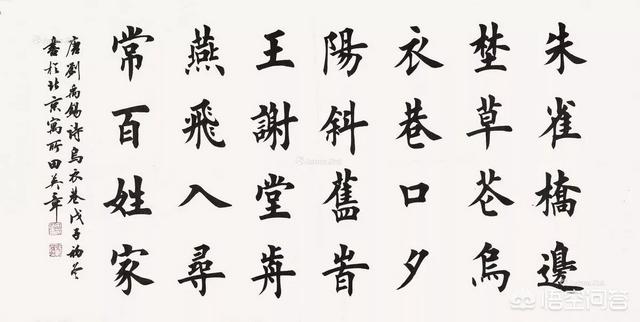 朱雀橋邊
埜草芲烏
衣巷口夕
陽斜舊旹
王謝堂歬
燕飛入尋
常百姓家
唐劉禹錫詩烏衣巷戊子初冬
書於北京寓所田英章
悟空问答